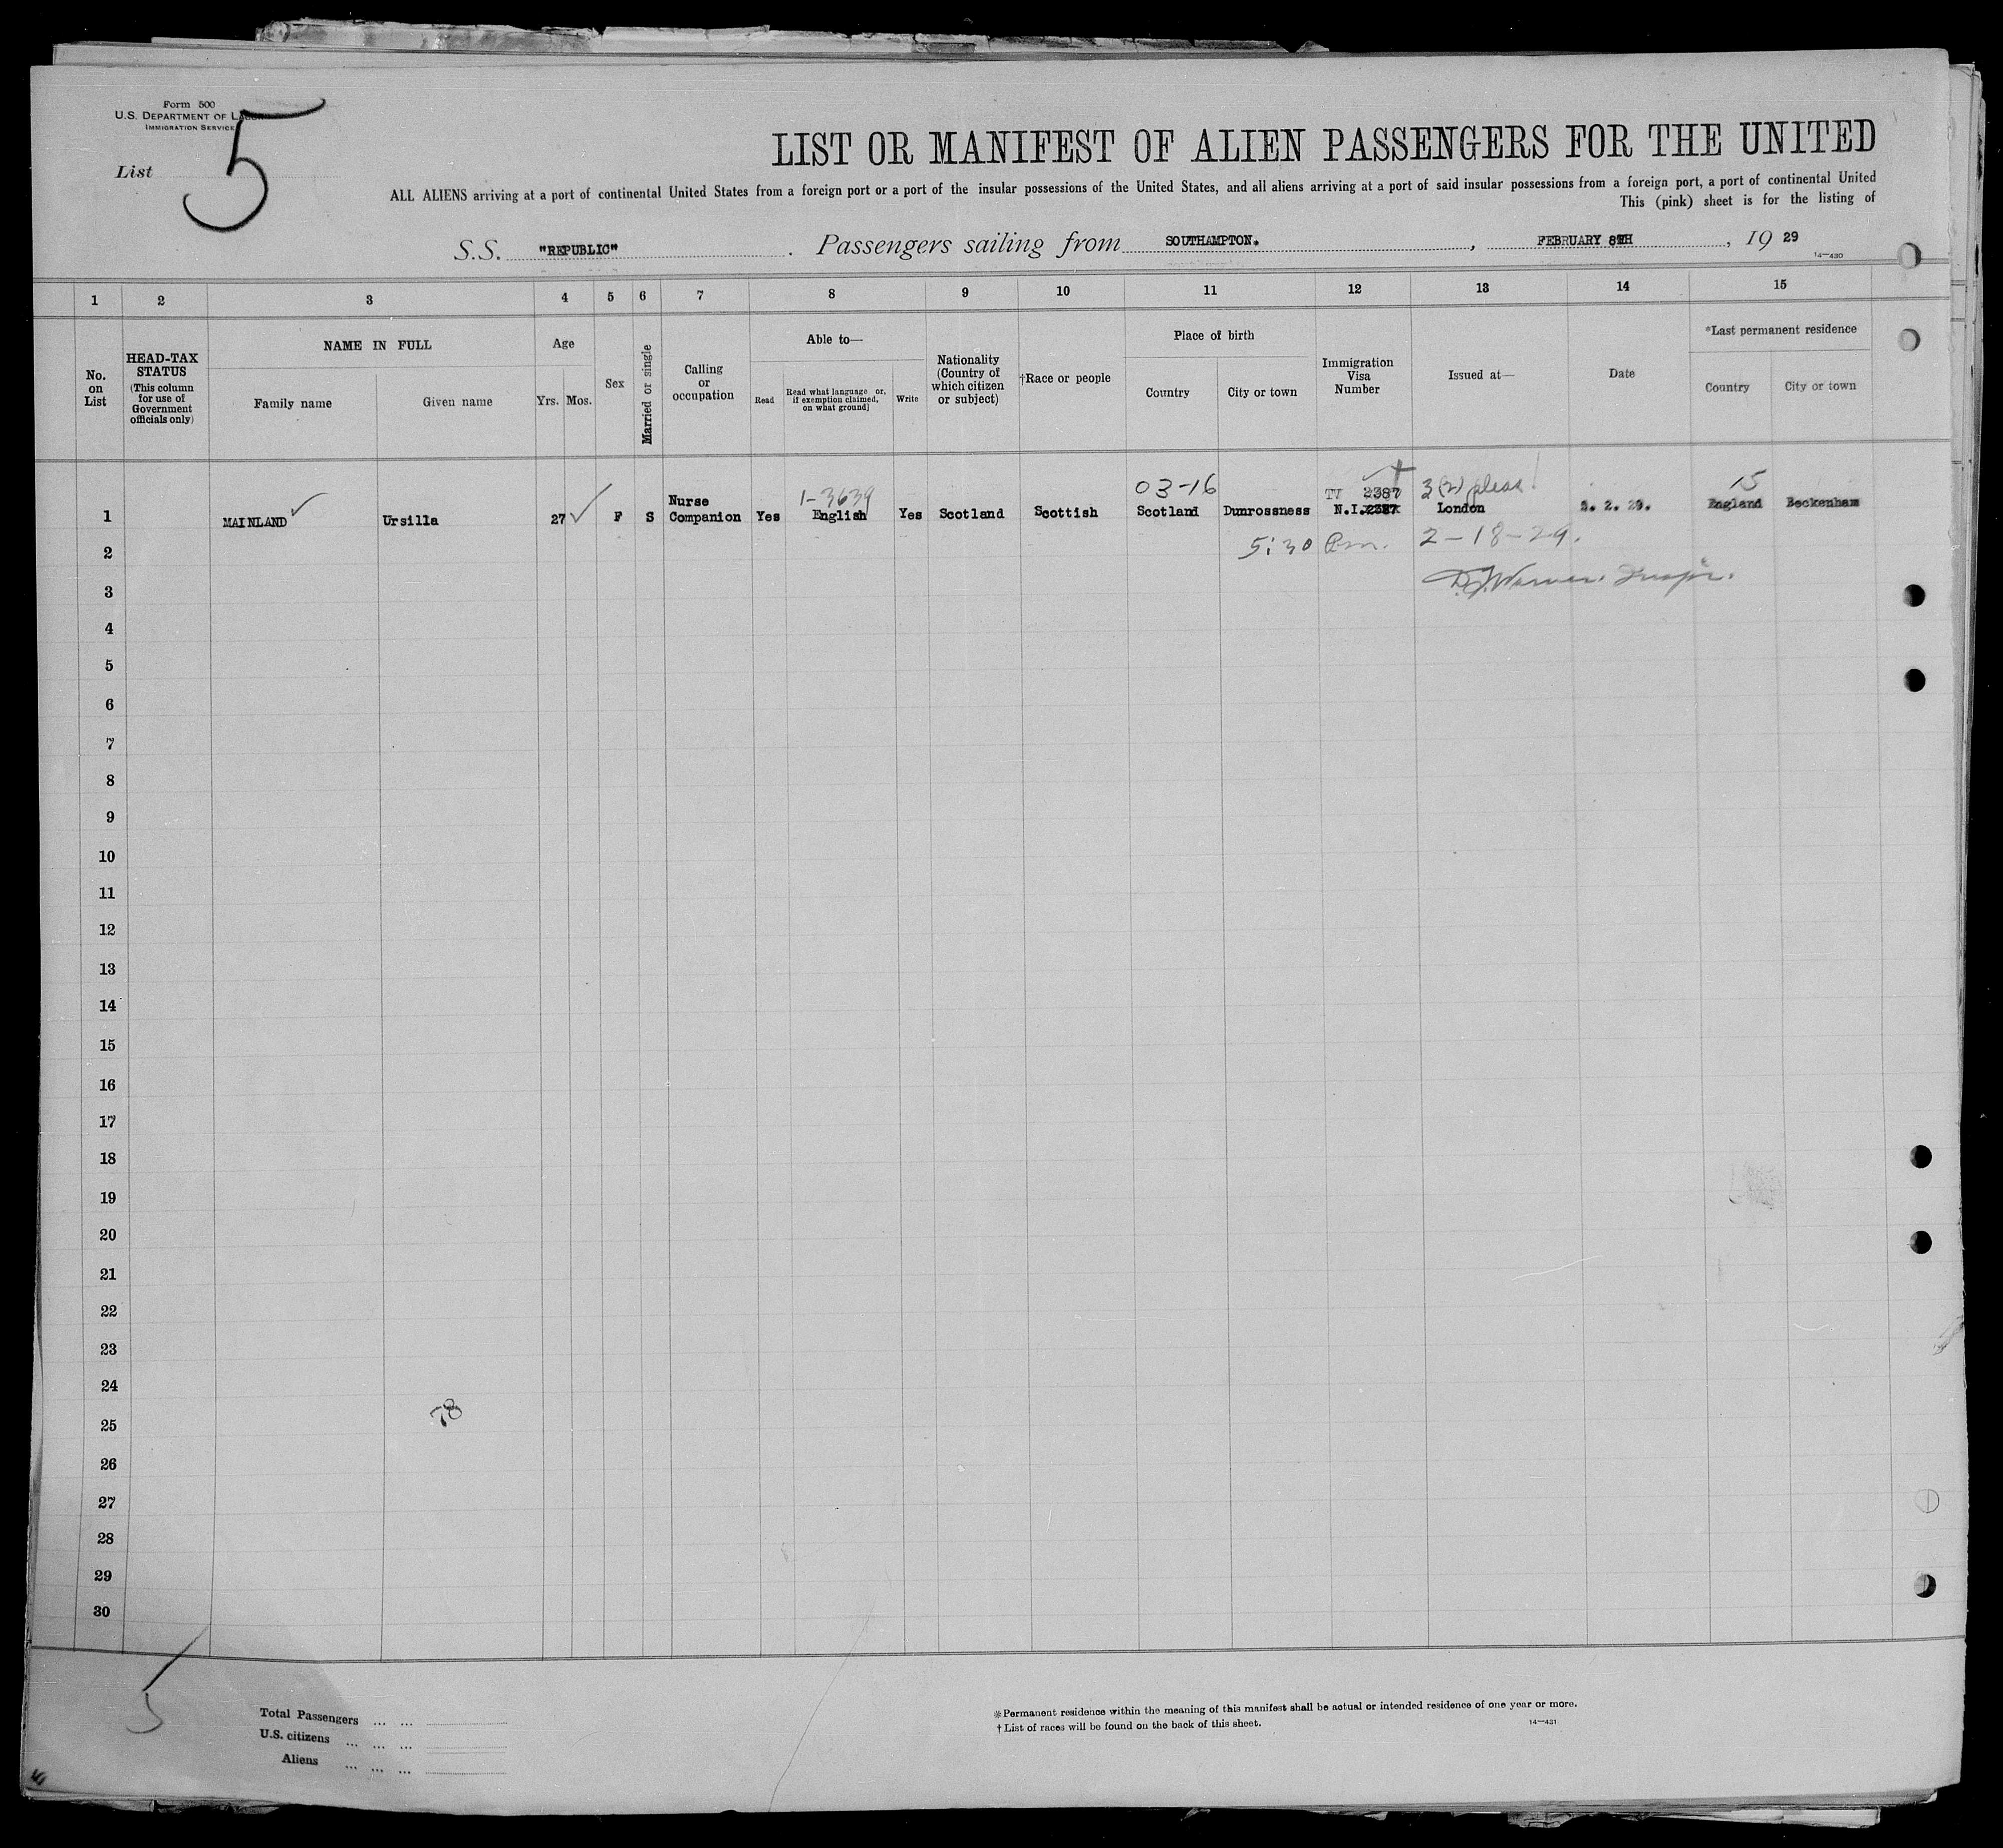 Form 500
U.S. DEPARTMENT OF LABOR
IMMIGRATION SERVICE
List 5
LIST OR MANIFEST OF ALIEN PASSENGERS FOR THE UNITED
ALL ALIENS arriving at a port of continental United States from a foreign port or a port of the insular possessions of the United States, and all aliens arriving at a port of said insular possessions from a foreign port, a port of continental United
This (pink) sheet is for the listing of
S.S. "REPUBLIC". Passengers sailing from SOUTHAMPTON., FEBRUARY 8TH, 19 29
14—430
1 2 3 4 5 6 7 8 9 10 11 12 13 14 15
No. on List
HEAD-TAX STATUS
(This column for use of Government officials only)
NAME IN FULL
Family name Given name
Age
Yrs. Mos.
Sex
Married or single
Calling or occupation
Able to—
Read
Read what language or, if exemption claimed, on what ground]
Write
Nationality (Country of which citizen or subject)
†Race or people
Place of birth
Country City or town
Immigration Visa Number
Issued at—
Date
*Last permanent residence
Country City or town
1-3639 03-16 TV 2387 3(2) 15
1 MAINLAND Ursilla 27 F S Nurse Companion Yes English Yes Scotland Scottish Scotland Dunrossness N.I. London 2. 29. England Beckenham
2 5:30 Pm. 2-18-29.
3
4
5
6
7
8
9
10
11
12
13
14
15
16
17
18
19
20
21
22
23
24
78
25
26
27
28
29
30
5
Total Passengers ... ...
U.S. citizens ... ... ...
Aliens ... ... ...
*Permanent residence within the meaning of this manifest shall be actual or intended residence of one year or more.
†List of races will be found on the back of this sheet.
14—431